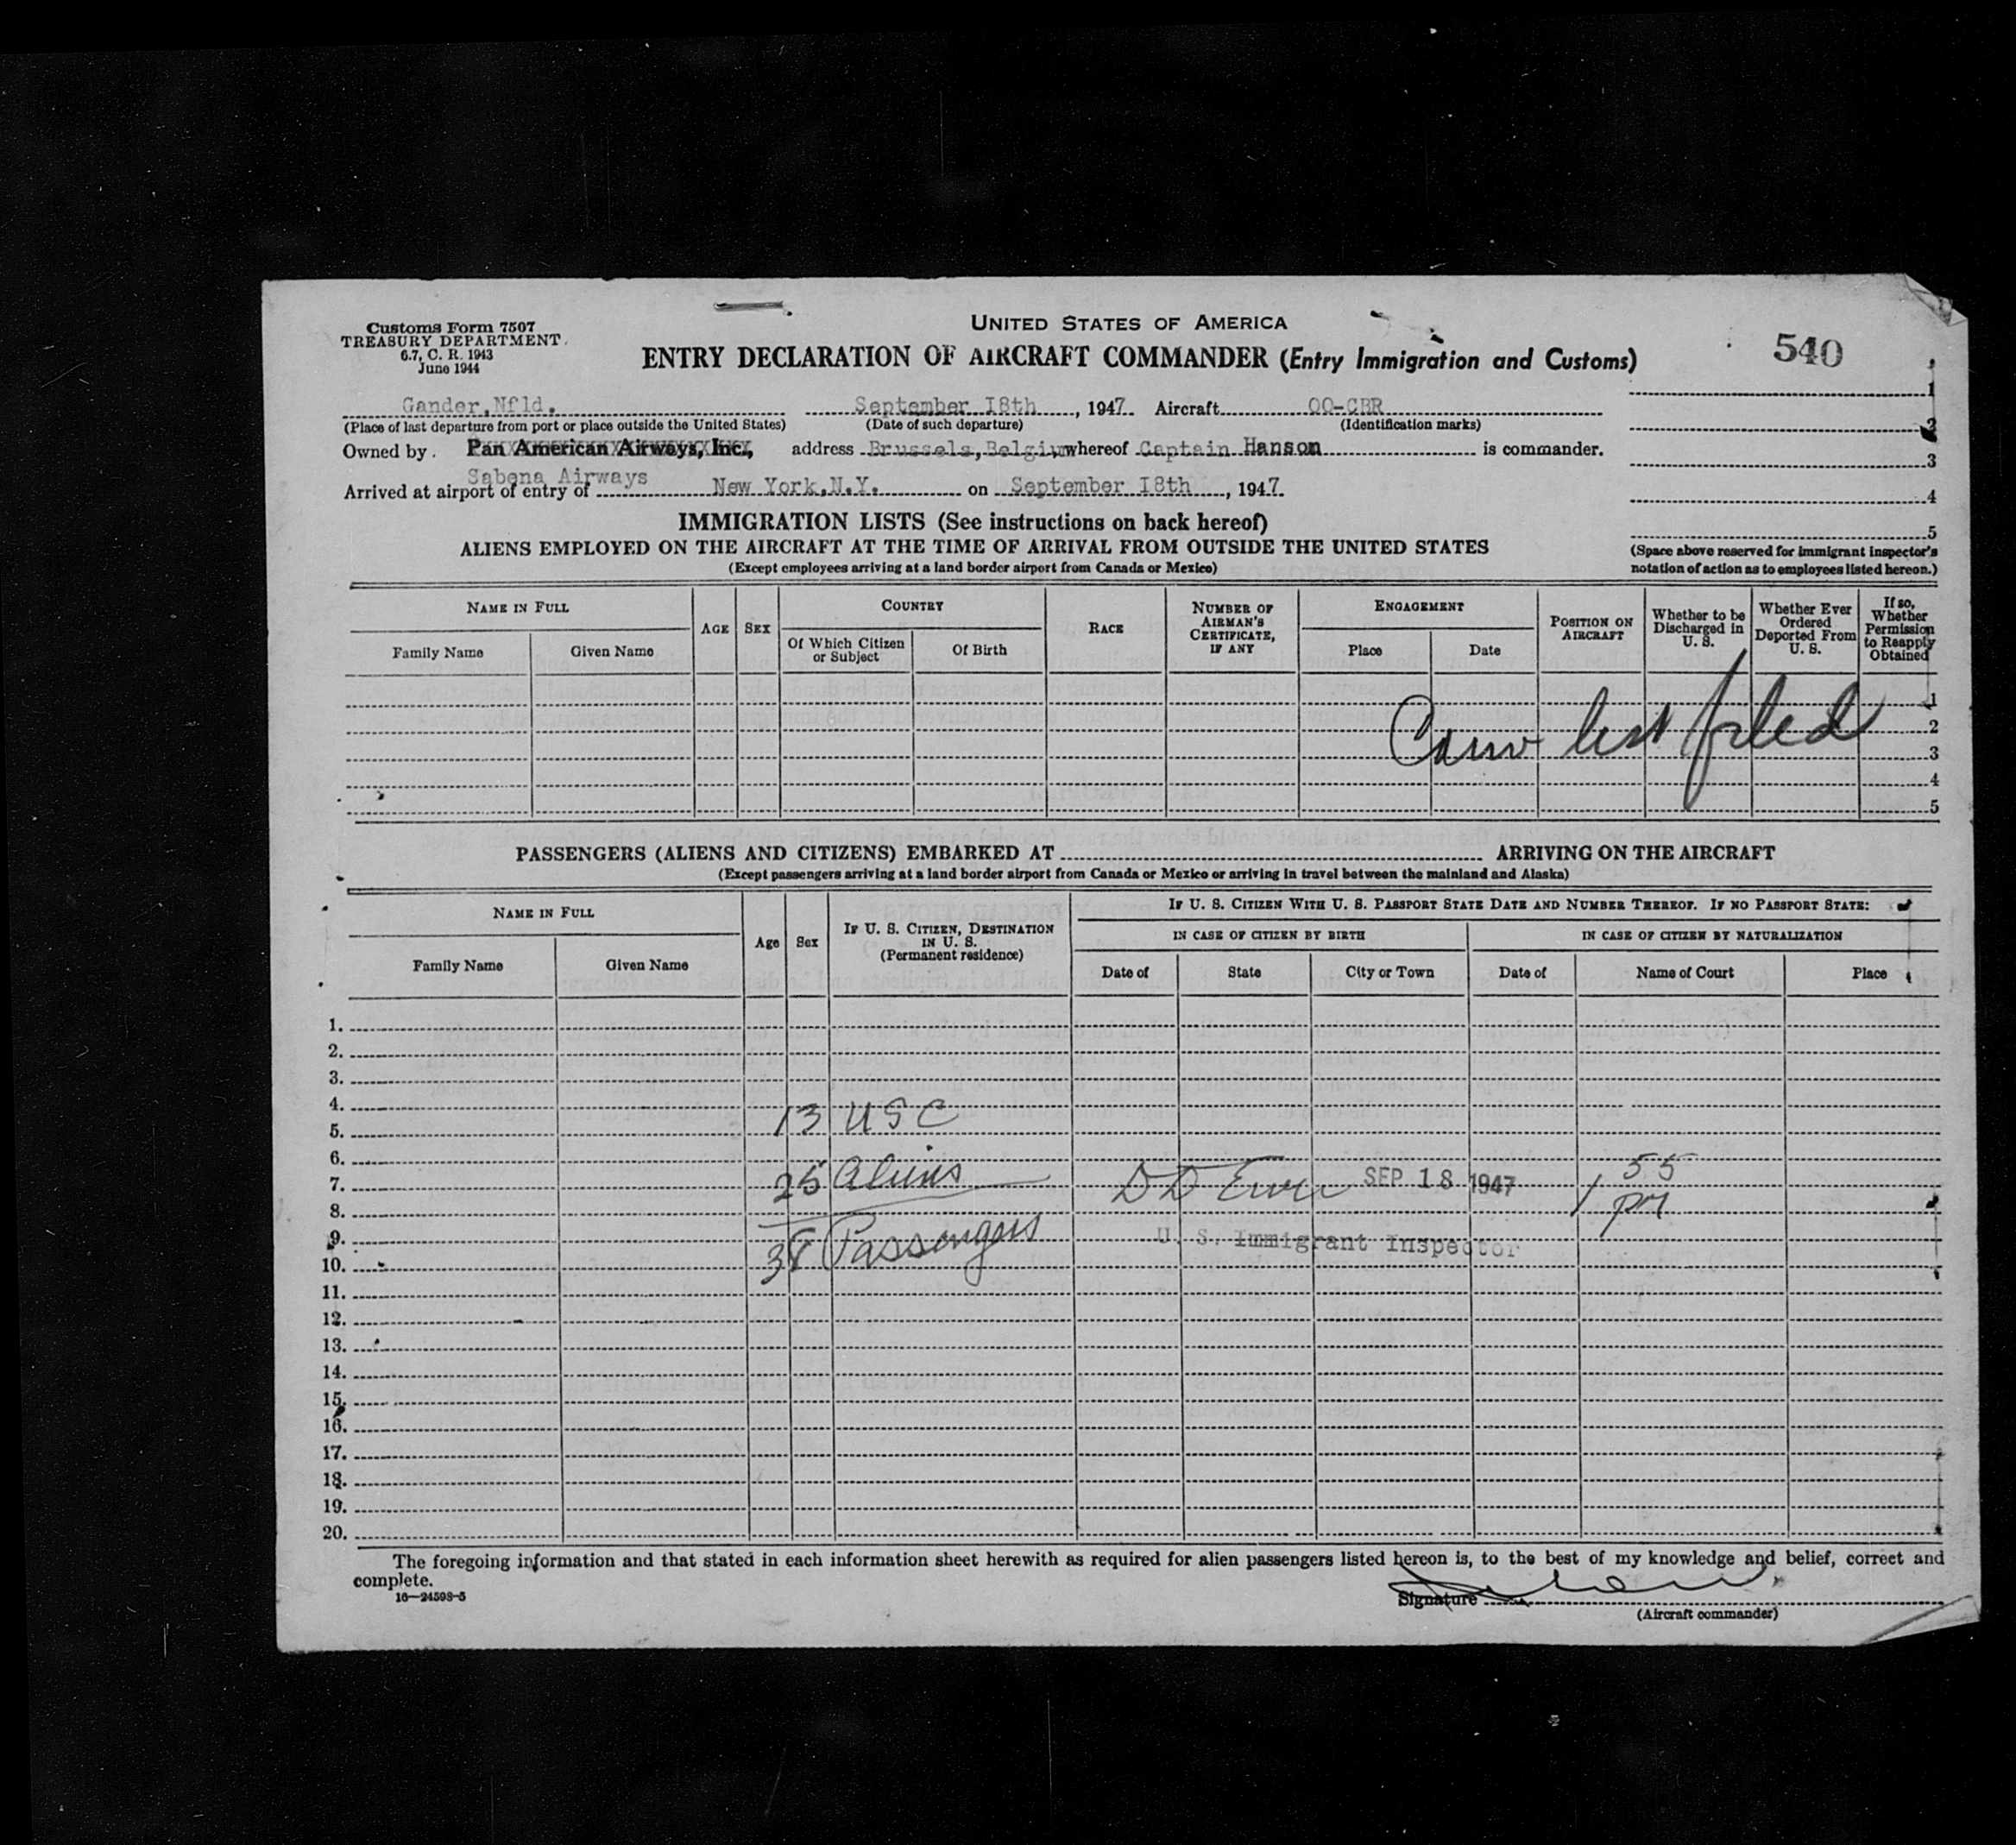 Customs Form 7507
TREASURY DEPARTMENT
6.7, C. R. 1943
June 1944
UNITED STATES OF AMERICA
ENTRY DECLARATION OF AIRCRAFT COMMANDER (Entry Immigration and Customs)
540
Gander,Nfld. September I8th, 1947. Aircraft OO-CBR
(Place of last departure from port or place outside the United States) (Date of such departure) (Identification marks)
Owned by Pan American Airways, Inc., address Brussels,Belgium whereof Captain Hanson is commander.
Sabena Airways
Arrived at airport of entry of New York,N.Y. on September I8th, 1947.
1
2
3
4
5
(Space above reserved for immigrant inspector's
notation of action as to employees listed hereon.)
IMMIGRATION LISTS (See instructions on back hereof)
ALIENS EMPLOYED ON THE AIRCRAFT AT THE TIME OF ARRIVAL FROM OUTSIDE THE UNITED STATES
(Except employees arriving at a land border airport from Canada or Mexico)
NAME IN FULL
Family Name
Given Name
AGE
SEX
COUNTRY
Of Which Citizen
or Subject
Of Birth
RACE
NUMBER OF
AIRMAN'S
CERTIFICATE,
IF ANY
ENGAGEMENT
Place
Date
POSITION ON
AIRCRAFT
Whether to be
Discharged in
U. S.
Whether Ever
Ordered
Deported From
U. S.
If so,
Whether
Permission
to Reapply
Obtained
1
2
3
4
5
list filed
PASSENGERS (ALIENS AND CITIZENS) EMBARKED AT ARRIVING ON THE AIRCRAFT
(Except passengers arriving at a land border airport from Canada or Mexico or arriving in travel between the mainland and Alaska)
NAME IN FULL
Family Name
Given Name
Age
Sex
IF U. S. CITIZEN, DESTINATION
IN U. S.
(Permanent residence)
IF U. S. CITIZEN WITH U. S. PASSPORT STATE DATE AND NUMBER THEREOF. IF NO PASSPORT STATE:
IN CASE OF CITIZEN BY BIRTH
IN CASE OF CITIZEN BY NATURALIZATION
Date of
State
City or Town
Date of
Name of Court
Place
1.
2.
3.
4.
5. 13 USC
6.
7. 25 Aliens SEP 18 1947 1 55 pm
8.
9. 38 Passengers U. S. Immigrant Inspector
10.
11.
12.
13.
14.
15.
16.
17.
18.
19.
20.
The foregoing information and that stated in each information sheet herewith as required for alien passengers listed hereon is, to the best of my knowledge and belief, correct and
complete.
16—24598-5
Signature
(Aircraft commander)